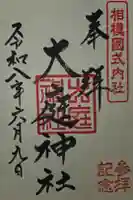 相模國式内社
奉拝
大庭神社
令和八年六月九日
参拝
記念